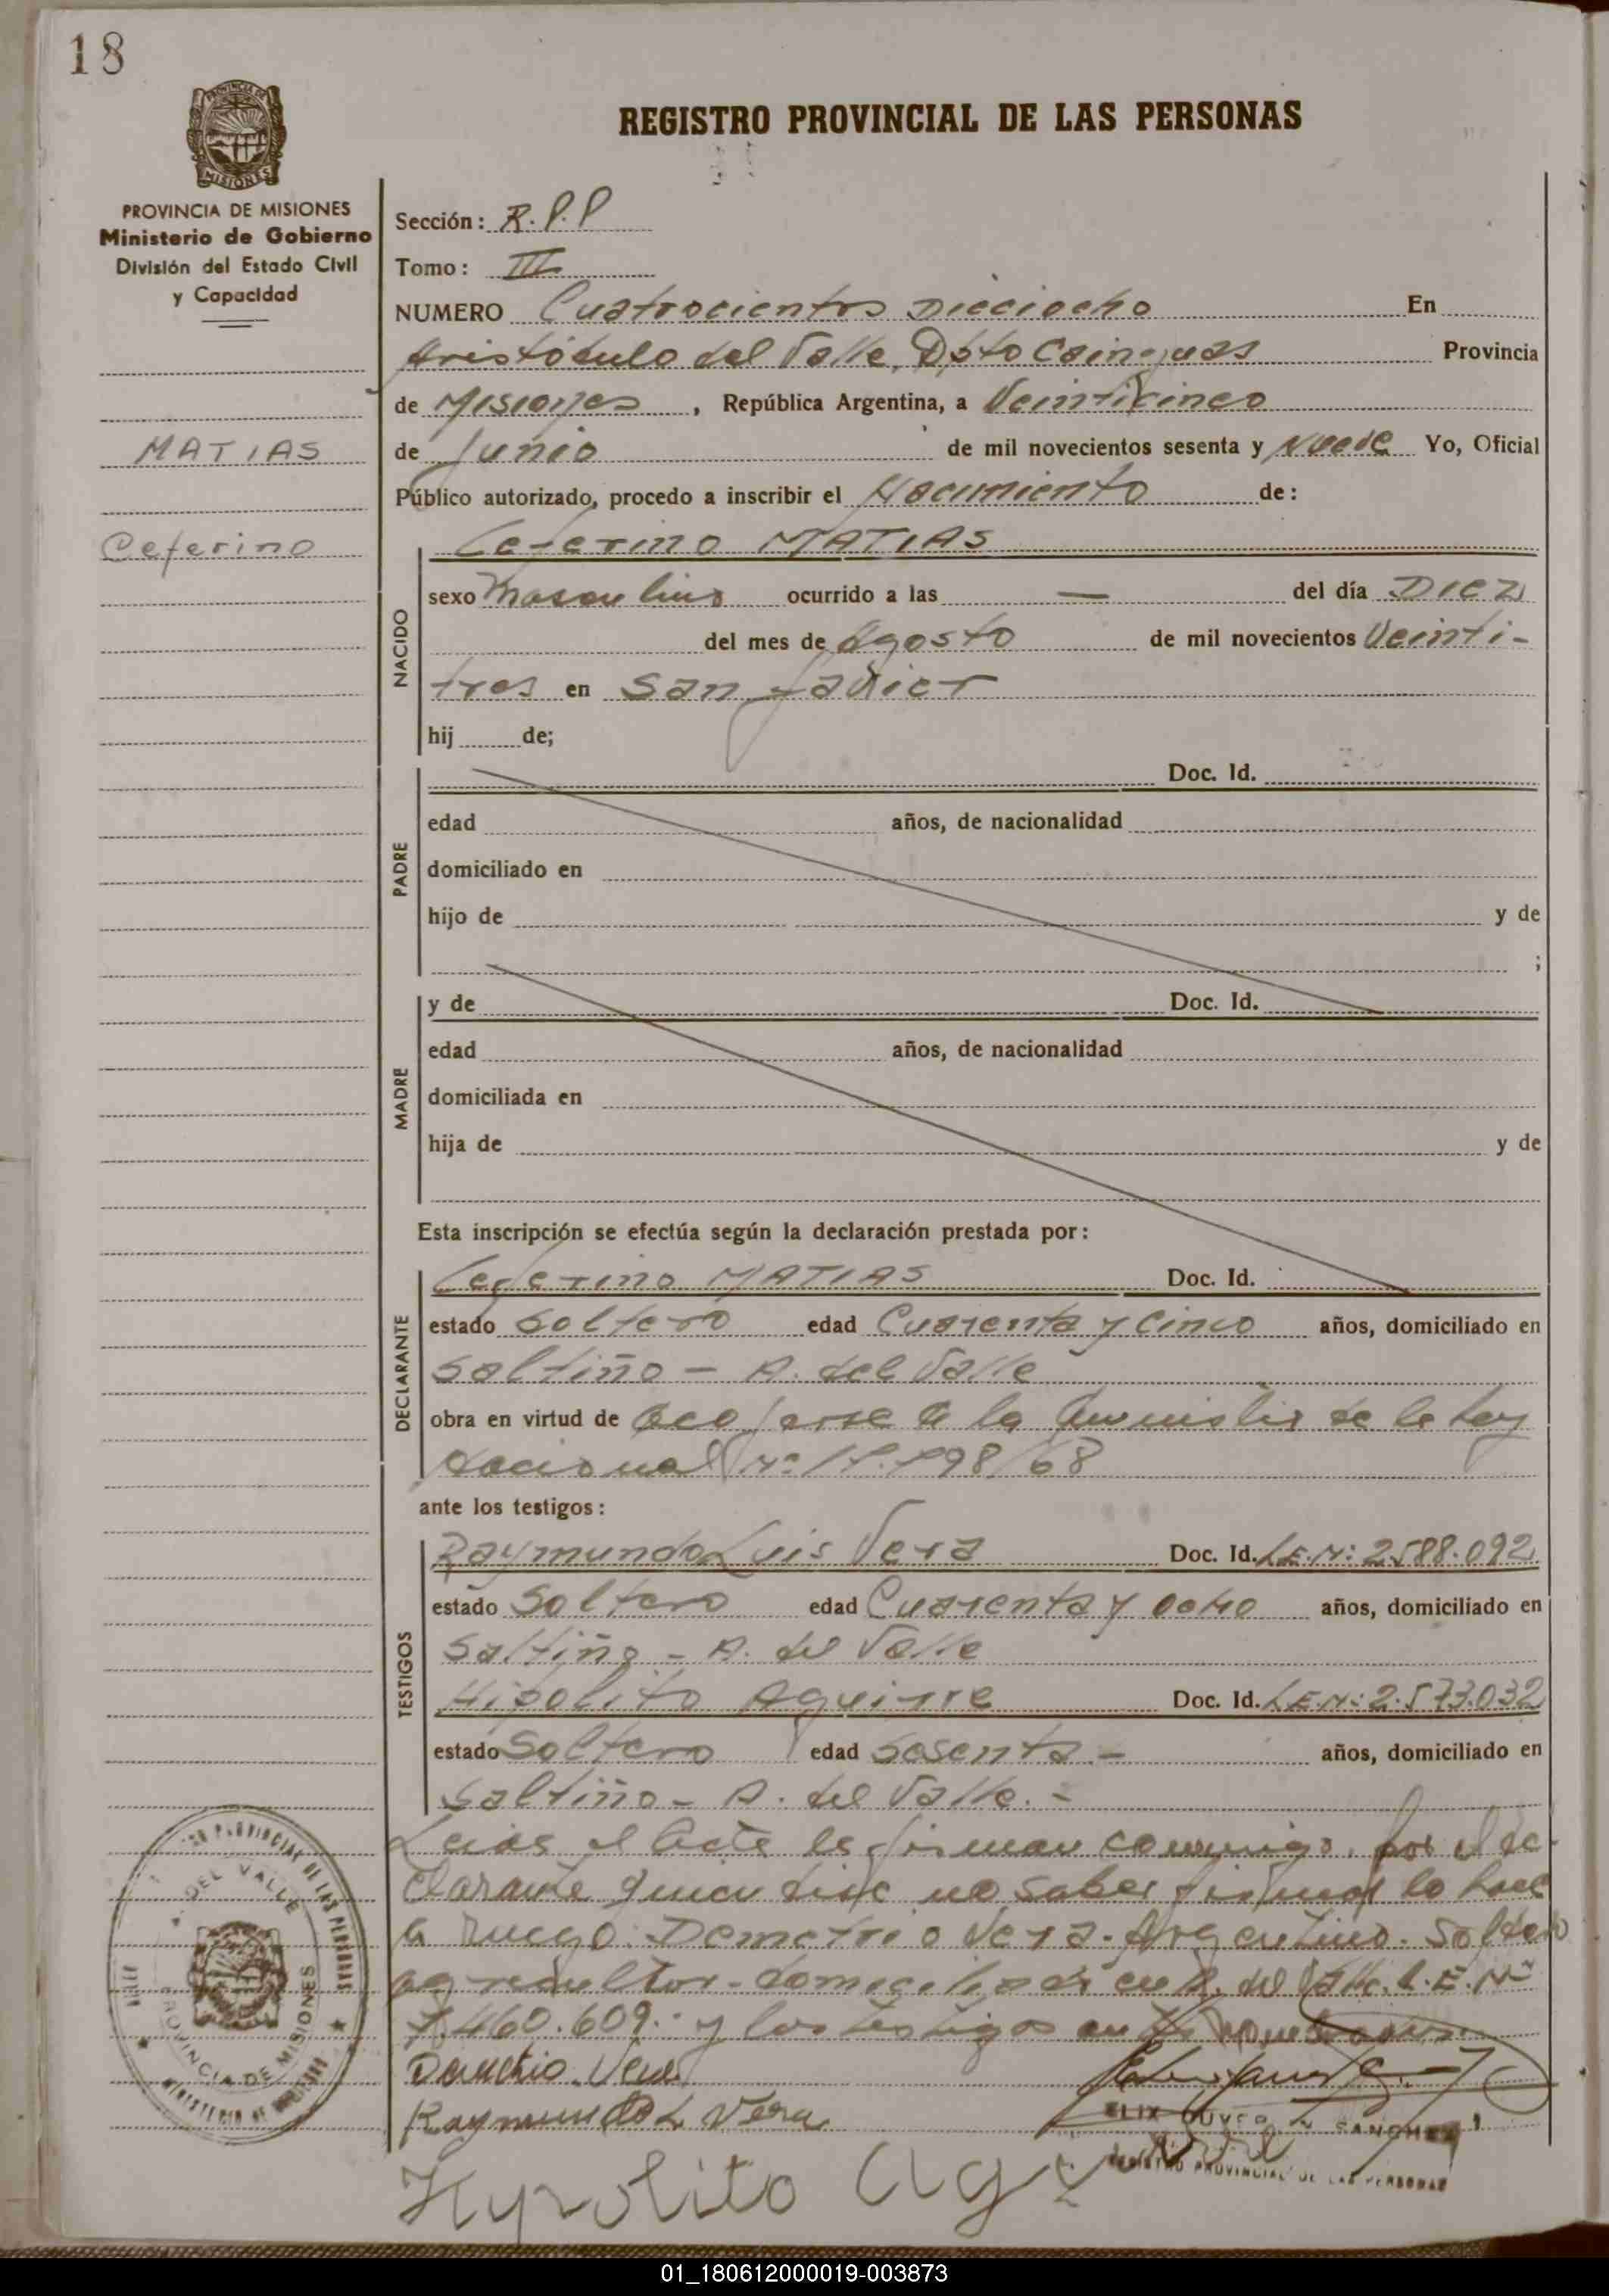 18
PROVINCIA DE MISIONES
Ministerio de Gobierno
División del Estado Civil
y Capacidad
MATIAS
Ceferino
REGISTRO PROVINCIAL DE LAS PERSONAS
Sección: R.P.P
Tomo: III
NUMERO Cuatrocientos Dieciocho En
Aristóbulo del Valle, Dpto Cainguas Provincia
de Misiones, República Argentina, a Veinticinco
de Junio de mil novecientos sesenta y Nueve Yo, Oficial
Público autorizado, procedo a inscribir el Nacimiento de:
NACIDO
Ceferino MATIAS
sexo Masculino ocurrido a las — del día DIEZ
del mes de Agosto de mil novecientos Veinti-
tres en San Javier
hij de;
PADRE
Doc. Id.
edad años, de nacionalidad
domiciliado en
hijo de y de
;
MADRE
y de Doc. Id.
edad años, de nacionalidad
domiciliada en
hija de y de
Esta inscripción se efectúa según la declaración prestada por:
DECLARANTE
Ceferino MATIAS Doc. Id.
estado Soltero edad Cuarenta y Cinco años, domiciliado en
Saltiño - A. del Valle
obra en virtud de acojerse a la Amnistia de la Ley
Nacional Nº 68
ante los testigos:
TESTIGOS
Raymundo Luis Vera Doc. Id. L.E.Nº: 2.588.092
estado Soltero edad Cuarenta y ocho años, domiciliado en
Saltiño - A. del Valle
Hipolito Aguirre Doc. Id. L.E.Nº: 2.573.032
estado Soltero edad Sesenta.- años, domiciliado en
Saltiño - A. del Valle.-
Leida el Acta la firman conmigo, por el de-
clarante quien dice no saber firmar lo hace
a ruego: Demetrio Vera. Argentino. Soltero
agricultor - domiciliado en A. del Valle. L.E. Nº
7.460.609.- y los testigos
Demetrio Vera
Raymundo L Vera
SANCHEZ
REGISTRO PROVINCIAL DE LAS PERSONAS
Hypolito
01_180612000019-003873